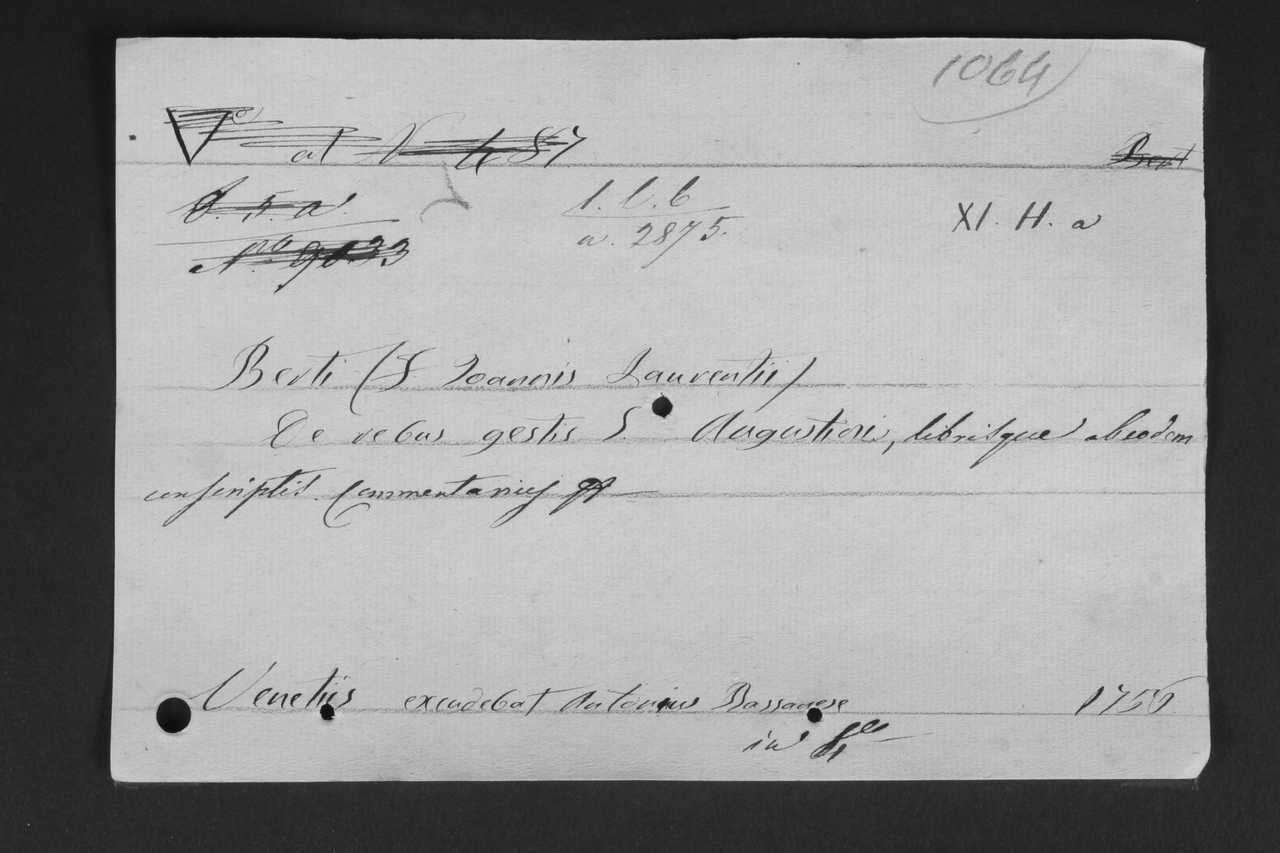 1064
at N 487
Bert
I. 5. a.
1. l. b
XI. H. a
No 9033
a. 2875.
Berti (F Joannis Laurentii)
De rebus gestis S. Augustini, librisque ab eodem
conscriptis. Commentarius
Venetiis excudebat Antonius Bassanese 1756
in